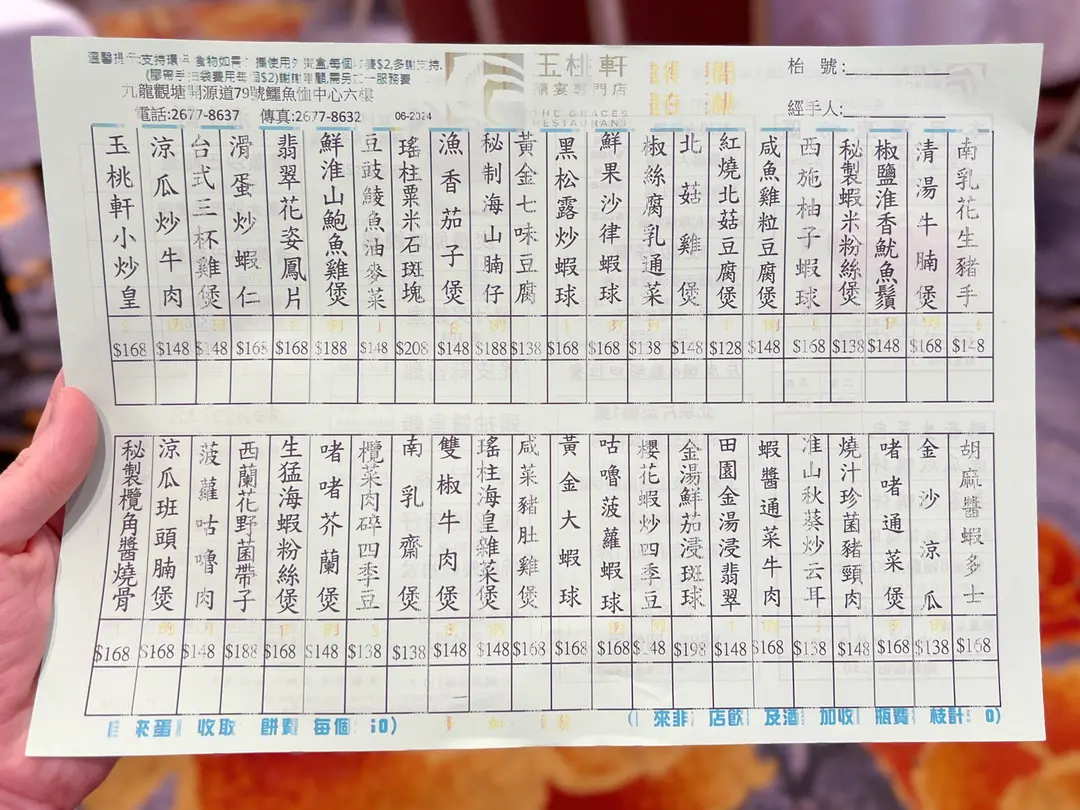 溫馨提示:支持環
食物如需
攜使用外
盒,每個
費$2,多謝支持.
袋費用每個$2)謝謝
顧,需另加一服務費
九龍觀塘開源道79號鱷魚恤中心六樓
電話:2677-8637 傳真:2677-8632 06-2024
玉桃軒
精宴專門店
THE GRACES
RESTAURANT
枱 號:
經手人:
南乳花生豬手
$148
清湯牛腩煲
$168
椒鹽淮香魷魚鬚
$148
秘製蝦米粉絲煲
$138
西施柚子蝦球
$168
咸魚雞粒豆腐煲
$148
紅燒北菇豆腐煲
$128
北菇雞煲
$148
椒絲腐乳通菜
$138
鮮果沙律蝦球
$168
黑松露炒蝦球
$168
黃金七味豆腐
$138
秘制海山腩仔
$188
漁香茄子煲
$148
瑤柱粟米石斑塊
$208
豆豉鯪魚油麥菜
$148
鮮淮山鮑魚雞煲
$188
翡翠花姿鳳片
$168
滑蛋炒蝦仁
$168
台式三杯雞煲
$148
涼瓜炒牛肉
$148
玉桃軒小炒皇
$168
胡麻醬蝦多士
$168
金沙涼瓜
$138
啫啫通菜煲
$168
燒汁珍菌豬頸肉
$148
淮山秋葵炒云耳
$138
蝦醬通菜牛肉
$168
田園金湯浸翡翠
$148
金湯鮮茄浸斑球
$198
櫻花蝦炒四季豆
$148
咕嚕菠蘿蝦球
$168
黃金大蝦球
$168
咸菜豬肚雞煲
$168
瑤柱海皇雜菜煲
$148
雙椒牛肉煲
$148
南乳齋煲
$138
欖菜肉碎四季豆
$138
啫啫芥蘭煲
$148
生猛海蝦粉絲煲
$168
西蘭花野菌帶子
$188
菠蘿咕嚕肉
$148
涼瓜班頭腩煲
$168
秘製欖角醬燒骨
$168
來蛋
收取
餅費
每個
0)
(
來非
店飲
及酒
加收
瓶費
枝計
0)